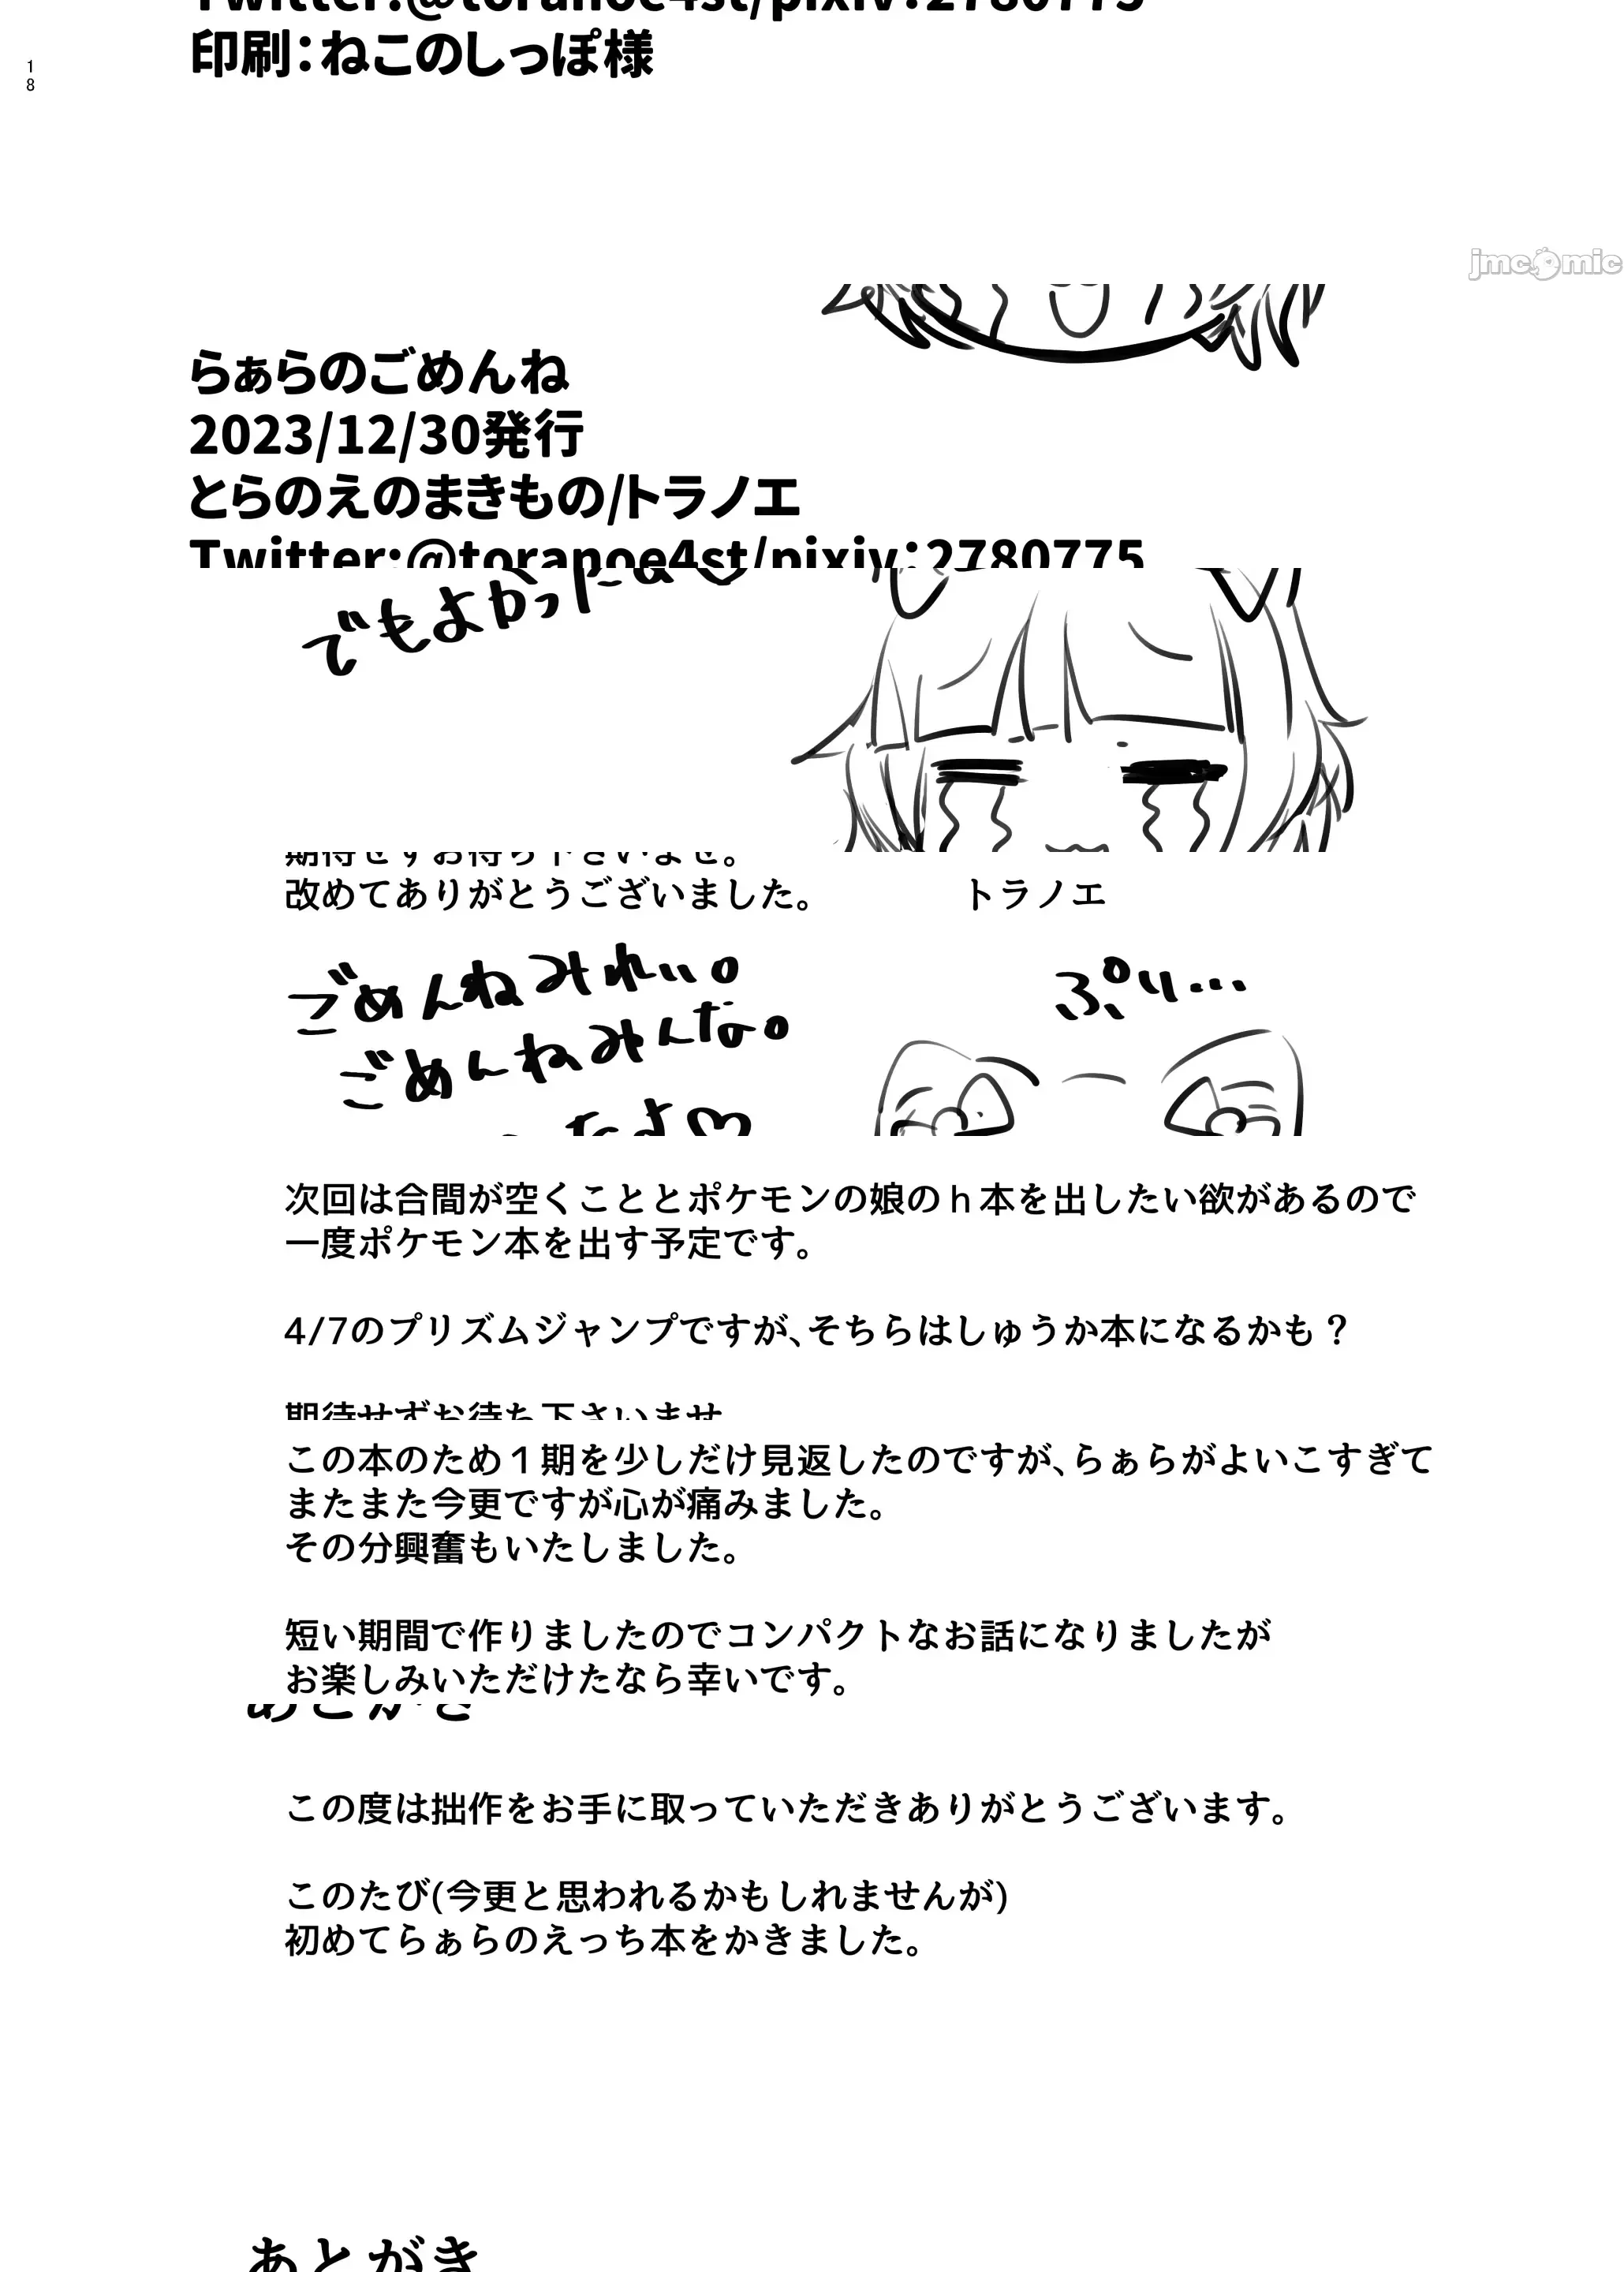 Twitter:@toranoe4st/pixiv:2780775
印刷：ねこのしっぽ様
18
jmcomic
らぁらのごめんね
2023/12/30発行
とらのえのまきもの/トラノエ
Twitter:@toranoe4st/pixiv:2780775
でもよかったね
期待せずお待ち下さいませ。
改めてありがとうございました。 トラノエ
ごめんねみれぃ。
ぷり…
ごめんねみんな。
次回は合間が空くこととポケモンの娘のｈ本を出したい欲があるので
一度ポケモン本を出す予定です。
4/7のプリズムジャンプですが、そちらはしゅうか本になるかも？
期待せずお待ち下さいませ
この本のため１期を少しだけ見返したのですが、らぁらがよいこすぎて
またまた今更ですが心が痛みました。
その分興奮もいたしました。
短い期間で作りましたのでコンパクトなお話になりましたが
お楽しみいただけたなら幸いです。
あとがき
この度は拙作をお手に取っていただきありがとうございます。
このたび(今更と思われるかもしれませんが)
初めてらぁらのえっち本をかきました。
あとがき